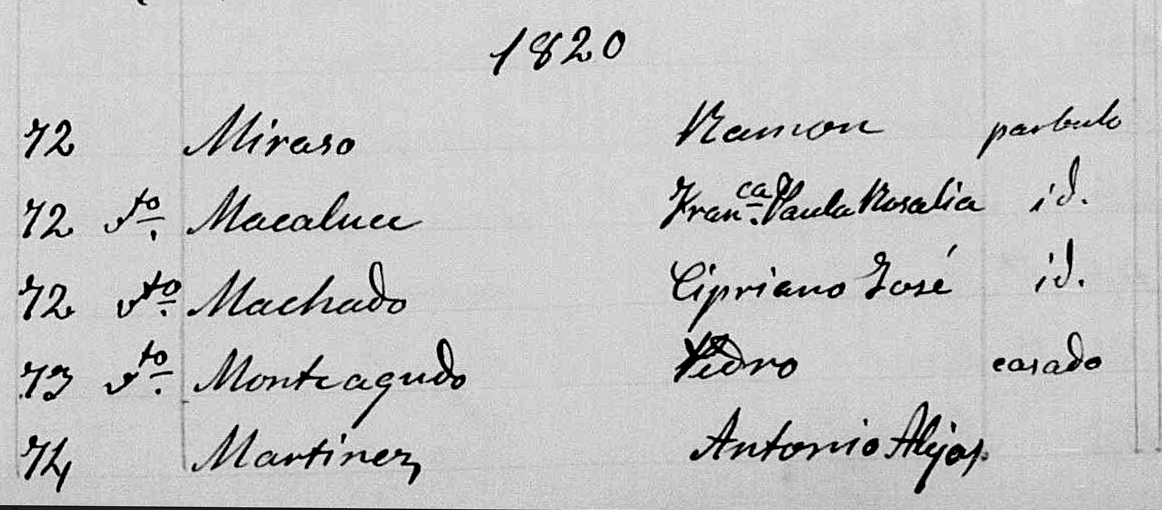 1820
72 Miraso Ramon parbulo
72 vto. Macaluce Franca. Paula Rosalia id.
72 vto. Machado Cipriano José id.
73 vto. Monteagudo Pedro casado
74 Martinez Antonio